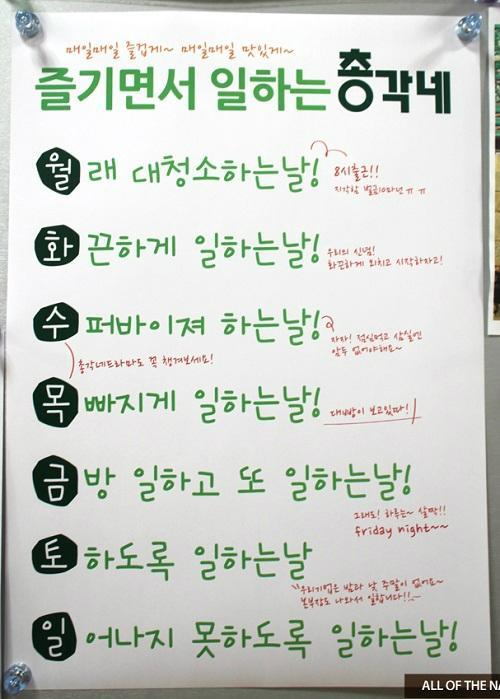 매일매일 즐겁게~ 매일매일 맛있게~
즐기면서 일하는 총각네
월래 대청소하는날!
8시출근!!
지각하면 벌금10만원 ㅠㅠ
화끈하게 일하는날!
우리의 신념!
화끈하게 외치고 시작하자고!
수퍼바이져 하는날!
자자! 점심먹고 삼실엔
암두 없어야해요~
총각네드라마도 꼭 챙겨보세요!
목빠지게 일하는날!
대빵이 보고있따!
금방 일하고 또 일하는날!
그래도! 하루는~ 살짝!!
friday night~~
토하도록 일하는날
"우리기업은 밤과 낮 주말이 없어요~
본부장도 나와서 일합니다!!~
일어나지 못하도록 일하는날!
ALL OF THE NA